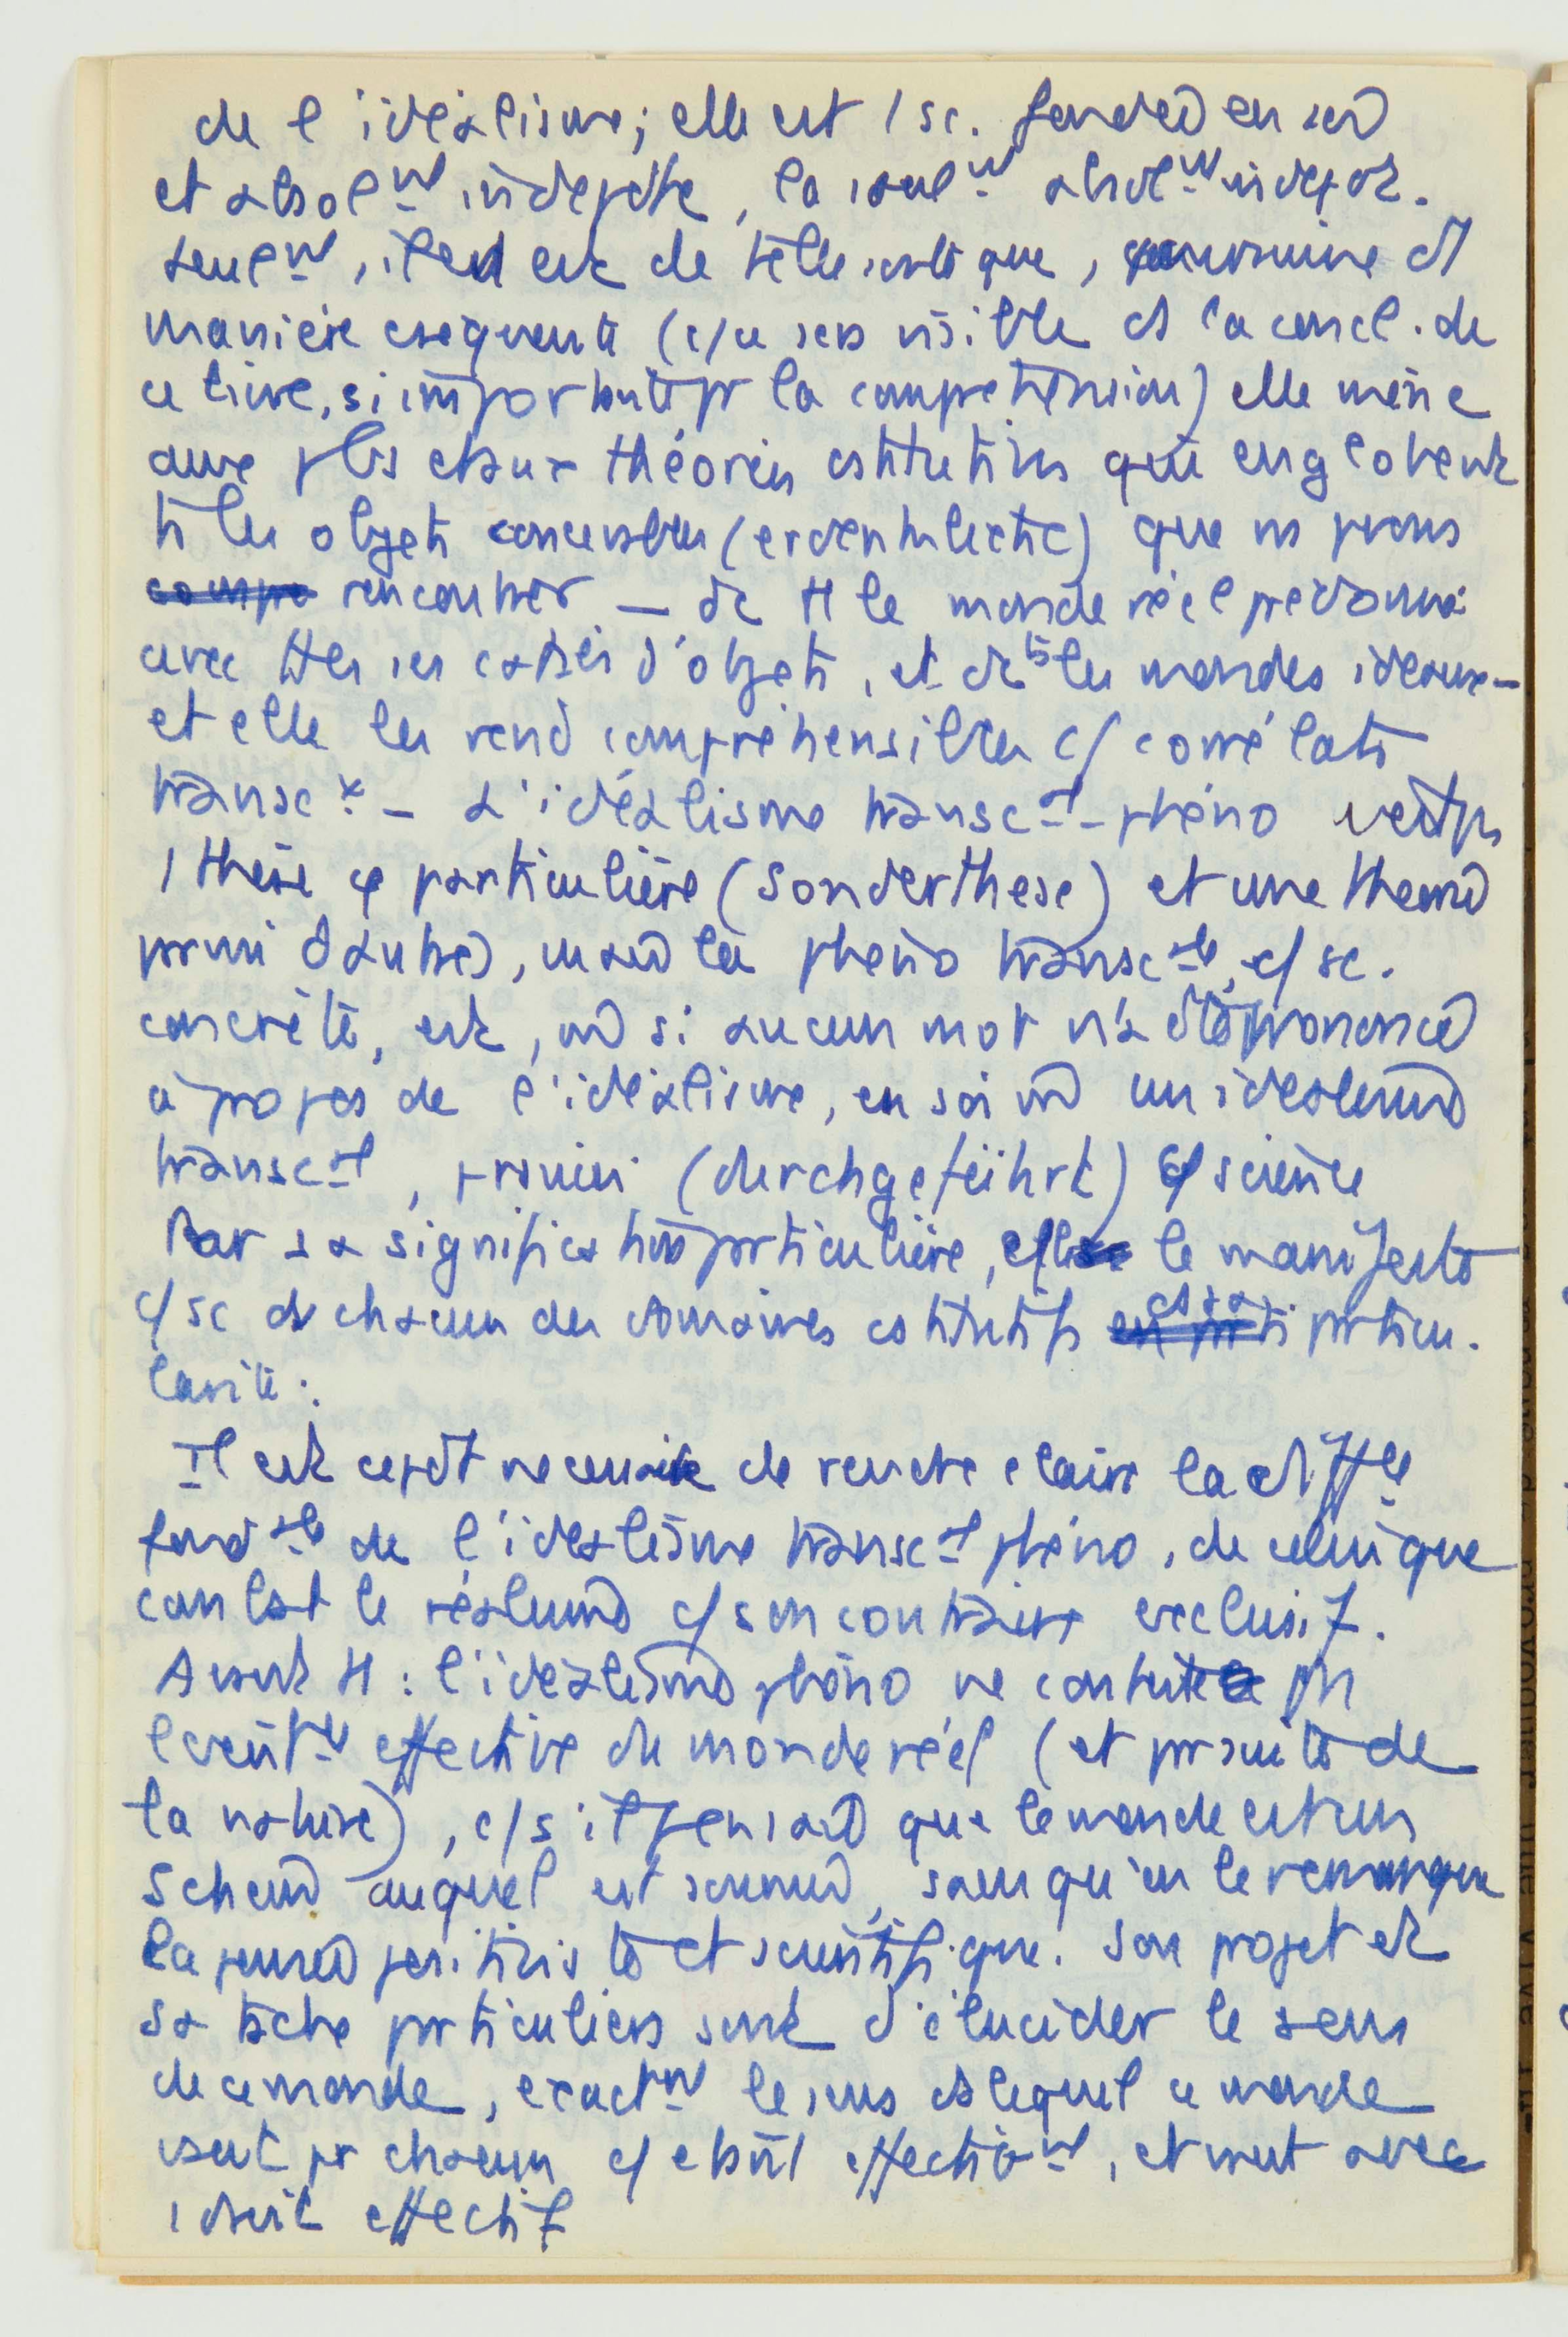 de l'idéalisme; elle est 1 sc. fondée en soi
et absolnt indépdte, la seulnt absolnt indépdt.
seulnt, il en est de telle sorte que, 
manière cséquente (c/ce sera visible ds la concl. de
ce livre, si importante pr la compréhension) elle mène
aux théories cstitutives qui englobent
ts les objets concevables (erdenkliche) que ns pvons
rencontrer — dc tt le monde réel prédonné
avec ttes ses catég d'objets, et dc ts les mondes idéaux —
et elle les rend compréhensibles c/ corrélats
transcx — L'idéalisme transcal-phéno n'est ps
1 thèse particulière (Sonderthese) et une théorie
prmi d'autres, mais la phéno transcale, c/ sc.
concrète, est, m si aucun mot n'a été prononcé
à propos de l'idéalisme, en soi m un idéalisme
transcal, (durchgeführt) c/ science
Par sa signification prticulière, elle le manifeste
c/ sc ds chacun des domaines cstitutifs ds sa prticu.
larité.
Il est cepdt nécessaire de rendre claire la diffce
fondale de l'idéalisme transcal phéno, de celui que
combat le réalisme c/ son contraire exclusif.
Avant tt : l'idéalisme phéno ne conteste ps
l'existce effective du monde réel (et pr suite de
la nature), c/ s'il pensait que le monde est un
schein auquel est soumise, sans qu'on le remarque
la pensée positiviste et scientifique. Son projet et
sa tâche prticuliers sont d'élucider le sens
de ce monde, exactnt le sens ds lequel ce monde
vaut pr chacun c/ étant effectivnt, et vaut avec
1 droit effectif